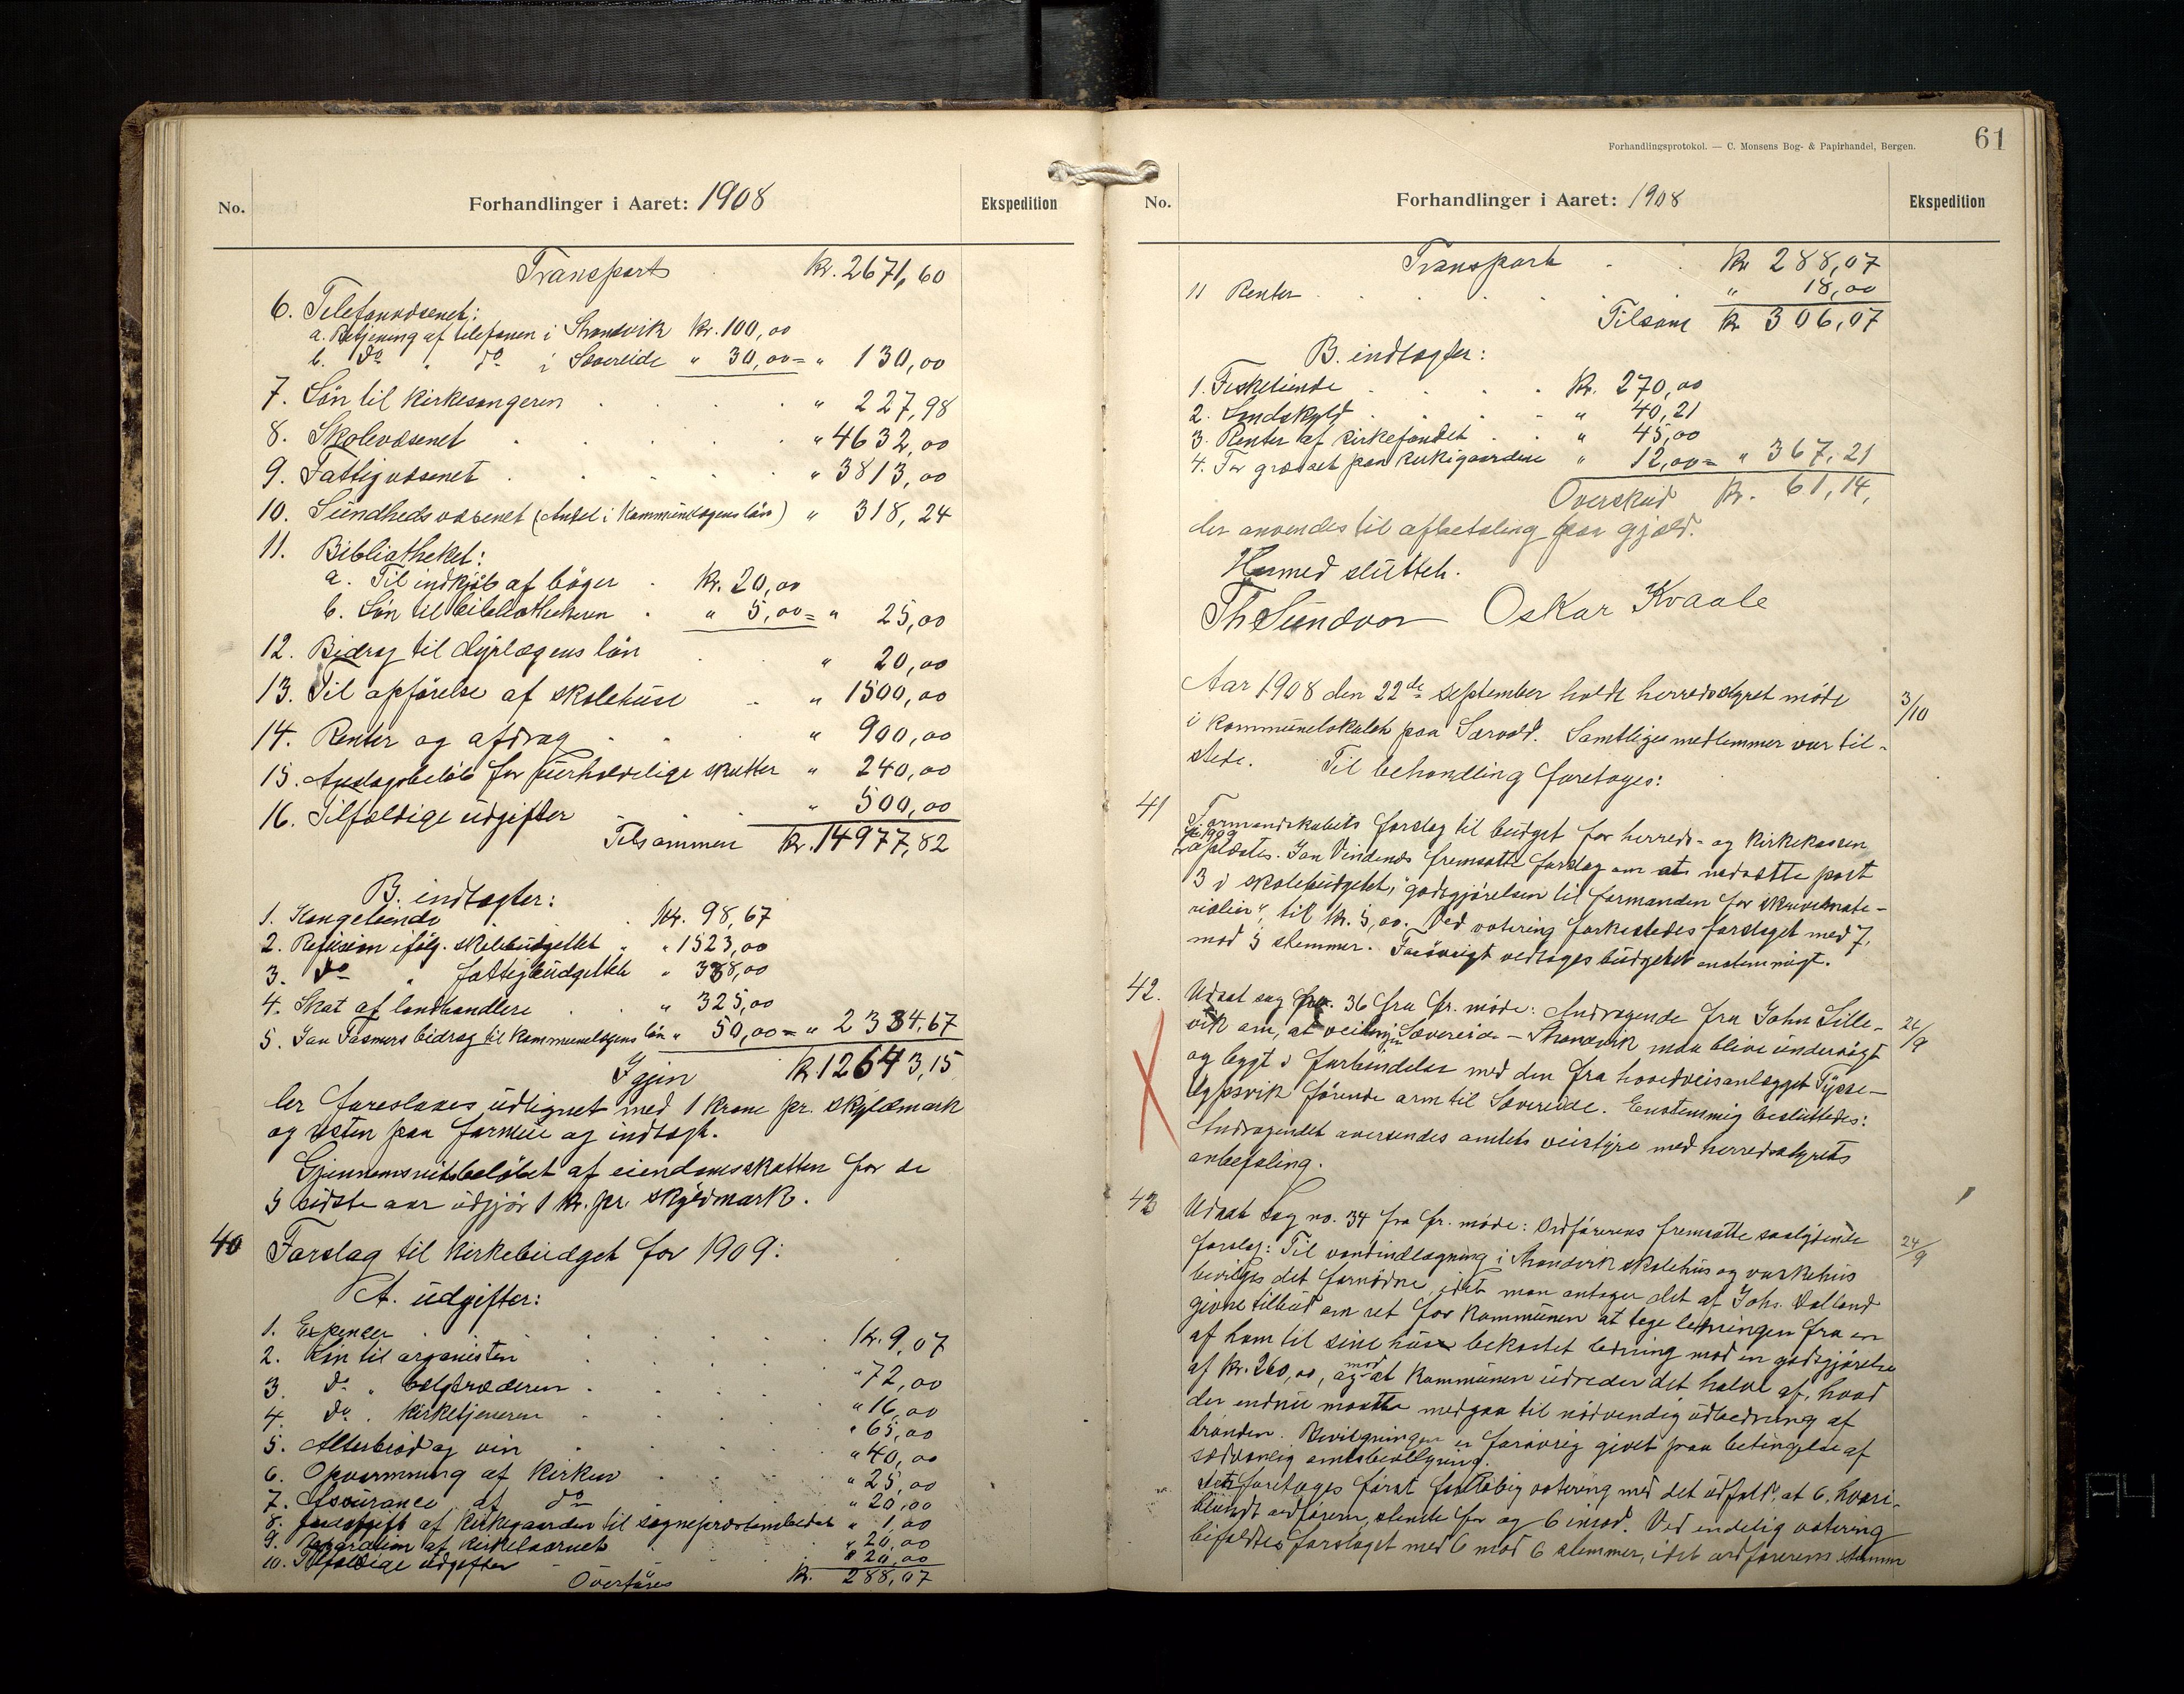 No.
Forhandlinger i Aaret: 1908
Ekspedition
Transport kr. 2671,60
6. Telefonvæsenet:
a. Betjening af telefonen i Strandvik kr. 100,00
b. do " do i Sævereide " 30,00 = " 130,00
7. Løn til kirkesangeren " 227,98
8. Skolevæsenet " 4632,00
9. Fattigvæsenet " 3813,00
10. Sundhedsvæsenet (Andel i kommunelægens løn) " 318,24
11. Bibliotheket:
a. Til indkjøb af bøger kr. 20,00
b. Løn til bibliothekeren " 5,00 = " 25,00
12. Bidrag til dyrlægens løn " 20,00
13. Til opførelse af skolehuse " 1500,00
14. Renter og afdrag " 900,00
15. Anslagsbeløb for uerholdelige skatter " 240,00
16. Tilfældige udgifter " 500,00
Tilsammen kr. 14977,82
B. indtægter:
1. Kongetiende kr. 98,67
2. Refusion ifølg. skolebudgettet " 1523,00
3. do " fattigbudgettet " 388,00
4. Skat af landhandlere " 325,00
5. Jan Fasmers bidrag til kommunelægens løn " 50,00 = " 2334,67
Igjen kr. 12643,15
der foreslaaes udlignet med 1 krone pr. skyldmark
og resten paa formue og indtægt.
Gjennemsnitsbeløbet af eiendomsskatten for de
5 sidste aar udgjør 1 kr. pr. skyldmark.
40 Forslag til kirkebudget for 1909:
A. udgifter:
1. Expenser kr. 9,07
2. Løn til organisten " 72,00
3. do " bælgtræderen " 16,00
4. do " kirketjeneren " 65,00
5. Alterbrød og vin " 40,00
6. Opvarmning af kirken " 25,00
7. Assurance af do " 20,00
8. Jordafgift af kirkegaarden til sogneprestembedet " 1,00
9. Reparation af kirketaarnet " 20,00
10. Tilfældige udgifter " 20,00
Overføres kr. 288,07
Forhandlingsprotokol. — C. Monsens Bog- & Papirhandel, Bergen.
61
No.
Forhandlinger i Aaret: 1908
Ekspedition
Transport kr 288,07
11 Renter " 18,00
Tilsam kr 306,07
B. indtægter:
1. Fisketiende kr. 270,00
2. Landskyld " 40,21
3. Renter af kirkefondet " 45,00
4. For græsset paa kirkegaardene " 12,00 = " 367,21
Overskud kr. 61,14,
der anvendes til afbetaling paa gjæld.
Hermed sluttet.
Th Sundvor Oskar Kvaale
Aar 1908 den 22de september holdt herredsstyret møde
3/10
i kommunelokalet paa Sævold. Samtlige medlemmer var til-
stede. Til behandling foretoges:
41 Formandskabets forslag til budget for herreds- og kirkekassen
for 1909
oplæstes. Jan Vindenes fremsatte forslag om at nedsætte post
3 i skolebudgettet, "godtgjørelsen til formanden for skrivemate-
rialier", til kr. 5,00. Ved votering forkastedes forslaget med 7
mod 5 stemmer. Forøvrigt vedtoges budgettet enstemmigt.
42. Udsat sag no. 36 fra fr. møde: Andragende fra John Lille-
21/9
vik om, at veilinjen Sævereide – Strandvik maa blive undersøgt
og bygt i forbindelse med den fra hovedveisanlægget Tysse–
Ulfsvik førende arm til Sævereide. Enstemmig besluttedes:
Andragendet oversendes amtets veistyre med herredsstyrets
anbefaling.
43 Udsat sag no. 34 fra fr. møde: Ordføreren fremsatte saalydende
24/9
forslag: Til vandindlægning i Strandvik skolehus og vaskehus
bevilges det fornødne, idet man antager det af Johs. Dalland
givne tilbud om ret for kommunen at tage ledningen fra en
af ham til sine huse bekostet ledning mod en godtgjørelse
af kr. 260,00, og mod at kommunen udreder det halve af, hvad
der endnu maatte medgaa til nødvendig udbedring af
brønden. Bevilgningen er forøvrig givet paa betingelse af
sædvanlig amtsbevilgning.
Der foretoges først foreløbig votering med det udfald, at 6, hvori-
blandt ordføreren, stemte for og 6 imod. Ved endelig votering
bifaldtes forslaget med 6 mod 6 stemmer, idet ordførerens stemme